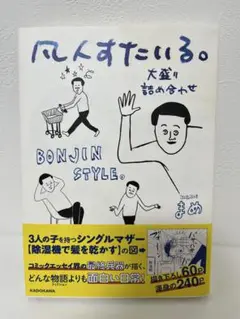 凡人すたいる。
大盛り
詰め合わせ
BONJIN
STYLE。
まめ
3人の子を持つシングルマザー
【除湿機で髪を乾かす】の図➡
コミックエッセイ界の最強兵器が描く、
どんな物語よりも面白い日常!
描き下ろし60P
渾身の240P
KADOKAWA